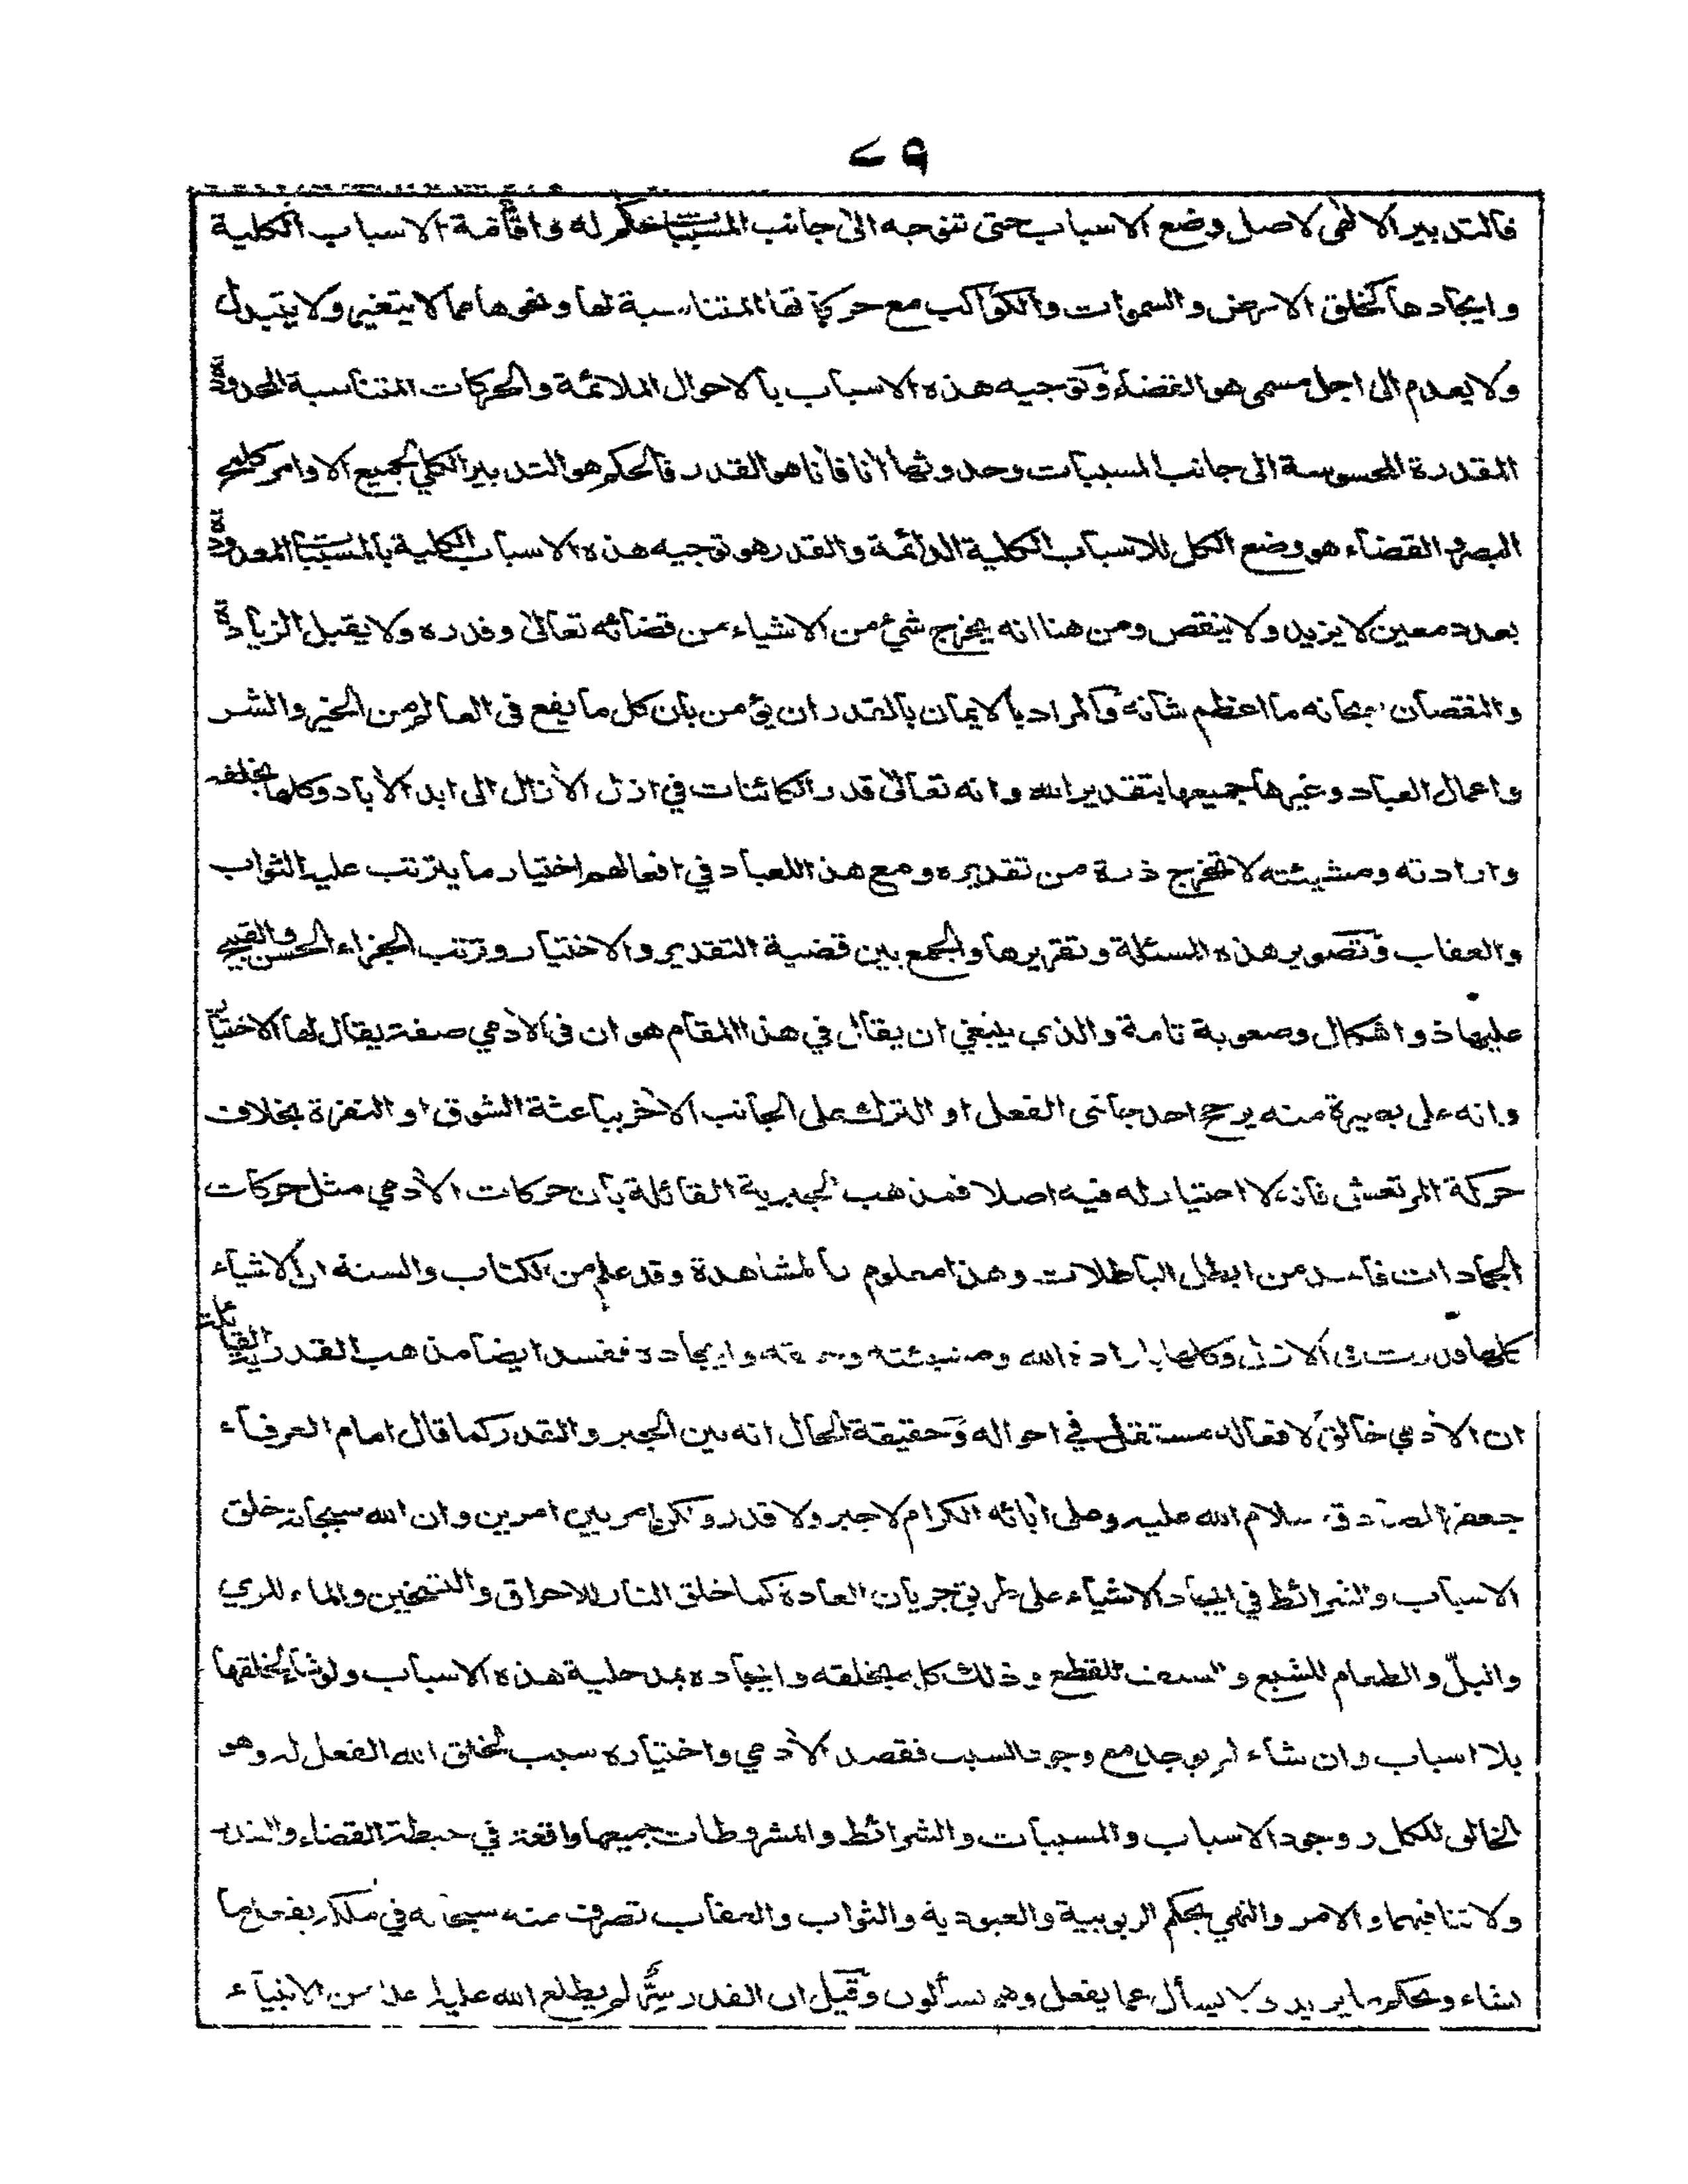 ٧٩
فالتدبير الالهى لاصل وضع الاسباب حتى تتوجه الى جانب المسببات حكم له واقامة الاسباب الكلية
وايجادها كخلق الارض والسموات والكواكب مع حركاتها المتناسبة لها ونحوها مما لا يتغير ولا يتبدل
ولا يعدم الى اجل مسمى هو القضاء وتوجيه هذه الاسباب بالاحوال الملائمة والحركات المتناسبة المحدودة
المقدرة المحسوسة الى جانب المسببات وحدوثها آنا فآنا هو القدر فالحكم هو التدبير الكلي لجميع الاوامر كلمح
البصر والقضاء هو وضع الكل للاسباب الكلية الدائمة والقدر هو توجيه هذه الاسباب الكلية بالمسببات المعدودة
بعدد معين لا يزيد ولا ينقص ومن هنا انه يخرج شئ من الاشياء من قضائه تعالى وقدره ولا يقبل الزيادة
والنقصان سبحانه ما اعظم شانه والمراد بالايمان بالقدر ان يؤمن بان كل ما يقع فى العالم من الخير والشر
واعمال العباد وغيرها جميعها بتقدير الله وانه تعالى قدر الكائنات في ازل الآزال الى ابد الآباد وكلها بخلقه
وارادته ومشيئته لا تخرج ذرة من تقديره ومع هذا للعباد في افعالهم اختيار ما يترتب عليه الثواب
والعقاب وتصوير هذه المسئلة وتقريرها والجمع بين قضية التقدير والاختيار وترتب الجزاء الحسن والقبيح
عليها ذو اشكال وصعوبة تامة والذي ينبغي ان يقال في هذا المقام هو ان فى الآدمي صفة يقال لها الاختيار
وانه على بصيرة منه يرجح احد جانبى الفعل او الترك على الجانب الآخر بباعثة الشوق او النفرة بخلاف
حركة المرتعش فانه لا اختيار له فيه اصلا فمذهب الجبرية القائلة بان حركات الآدمي مثل حركات
الجمادات فاسد من ابطل الباطلات وهذا معلوم بالمشاهدة وقد علم من الكتاب والسنة ان الاشياء
كلها قدرت فى الازل وكلها بارادة الله ومشيئته وخلقه وايجاده ففسد ايضا مذهب القدرية القائلة
ان الآدمي خالق لافعاله مستقل في احواله وحقيقة الحال انه بين الجبر والقدر كما قال امام العرفاء
جعفر الصادق سلام الله عليه وعلى آبائه الكرام لا جبر ولا قدر ولكن امر بين امرين وان الله سبحانه خلق
الاسباب والشرائط في ايجاد الاشياء على طريق جريان العادة كما خلق النار للاحراق والتسخين والماء للري
والبلّ والطعام للشبع والسيف للقطع وذلك كله بخلقه وايجاده بمدخلية هذه الاسباب ولو شاء لخلقها
بلا اسباب وان شاء لم يوجد مع وجود السبب فقصد الآدمي واختياره سبب لخلق الله الفعل له وهو
الخالق للكل ووجود الاسباب والمسببات والشرائط والمشروطات جميعها واقعة في حيطة القضاء والقدر
ولا تنافيهما والامر والنهي بحكم الربوبية والعبودية والثواب والعقاب تصرف منه سبحانه في ملكه يفعل ما
يشاء ويحكم ما يريد ولا يسأل عما يفعل وهم يسألون وقيل ان القدر سِرٌّ لم يطلع الله عليه من الانبياء